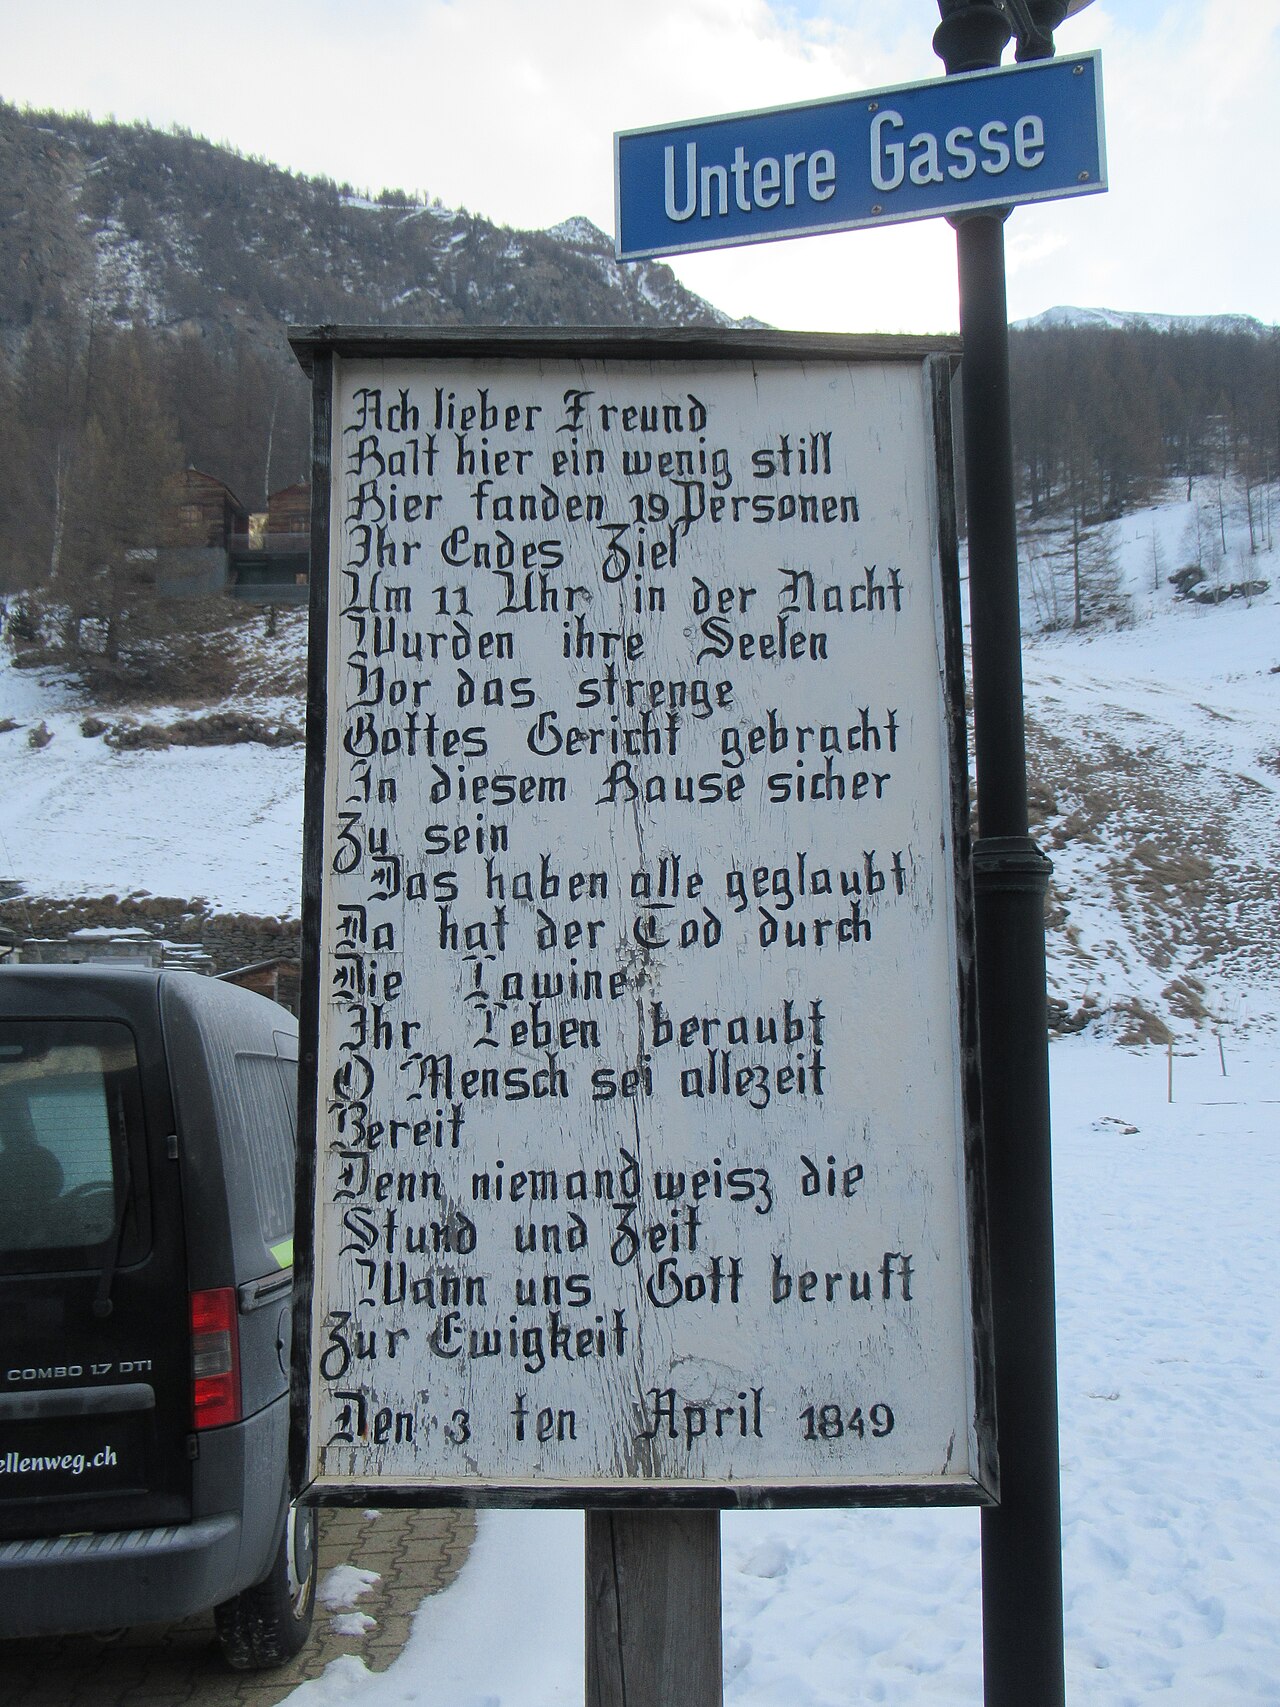 Untere Gasse
Ach lieber Freund
Halt hier ein wenig still
Hier fanden 19 Personen
Ihr Endes Ziel
Um 11 Uhr in der Nacht
Wurden ihre Seelen
Vor das strenge
Gottes Gericht gebracht
In diesem Hause sicher
Zu sein
Das haben alle geglaubt
Da hat der Tod durch
Die Lawine
Ihr Leben beraubt
O Mensch sei allezeit
Bereit
Denn niemand weisz die
Stund und Zeit
Wann uns Gott beruft
Zur Ewigkeit
Den 3 ten April 1849
COMBO 1.7 DTI
ellenweg.ch